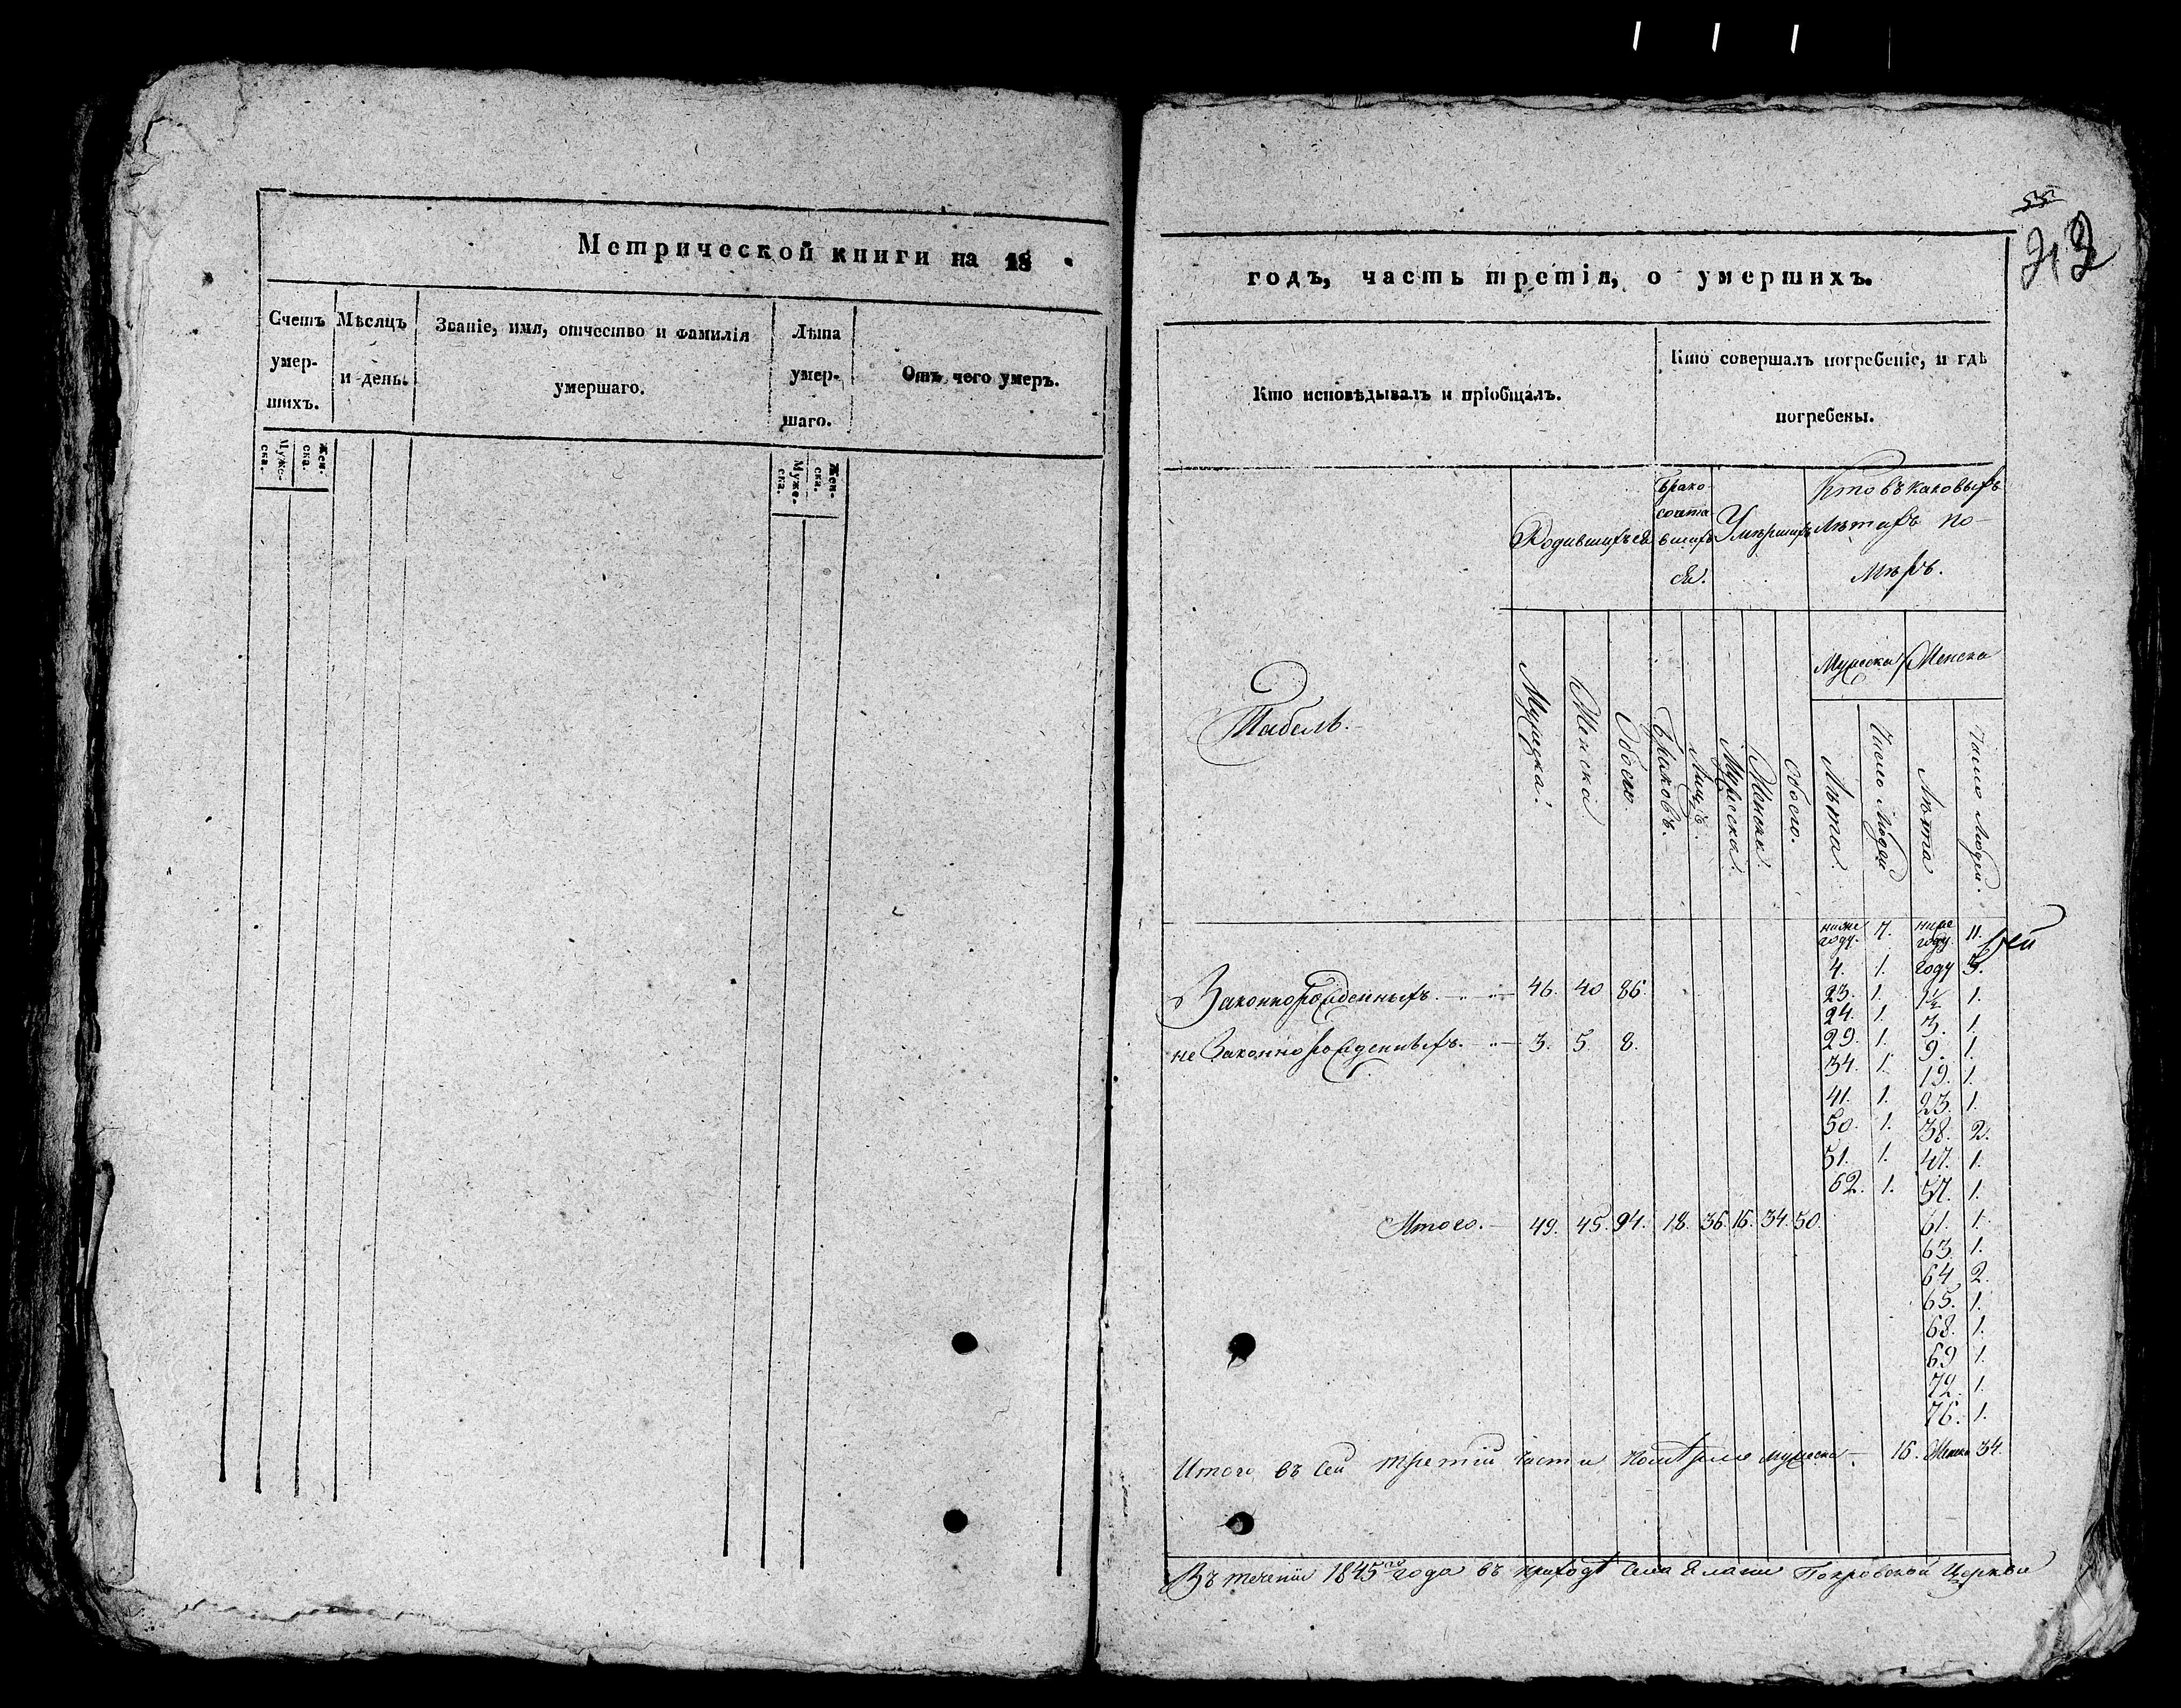 Метрической книги на 18
Счетъ умер-шихъ.
Мѣсяцъ и день.
Званіе, имя, отчество и фамилія умершаго.
Лѣта умер-шаго.
Отъ чего умеръ.
Муже-ска.
Жен-ска.
Муже-ска.
Жен-ска.
55
годъ, часть третія, о умершихъ.
Кто исповѣдывалъ и пріобщалъ.
Кто совершалъ погребеніе, и гдѣ погребены.
Табель.
Родившихся
Брако-сочтавшихся.
Умершихъ
Кто въ каковыхъ лѣтахъ по-меръ.
Мужеска Женска
Мужеска. Женска Обоего. Браковъ. Лицъ. Мужеска. Женска. Обоего. Лѣта. Число людей Лѣта Число людей.
ниже году. 7. ниже году. 11.
4. 1. году 5.
23. 1. 1½ 1.
24. 1. 3. 1.
29. 1. 9. 1.
34. 1. 19. 1.
41. 1. 23. 1.
50. 1. 38. 2.
51. 1. 47. 1.
62. 1. 57. 1.
61. 1.
63. 1.
64. 2.
65. 1.
68. 1.
69 1.
72. 1.
76. 1.
Законнорожденныхъ. 46. 40 86.
не Законно рожденныхъ. 3. 5. 8.
Итого. 49. 45. 94. 18. 36. 16. 34. 50.
Итого въ сей третій части мужеска 16. Женска 34.
Въ теченіи 1845го года въ приходѣ села Елани Покровской Церкви